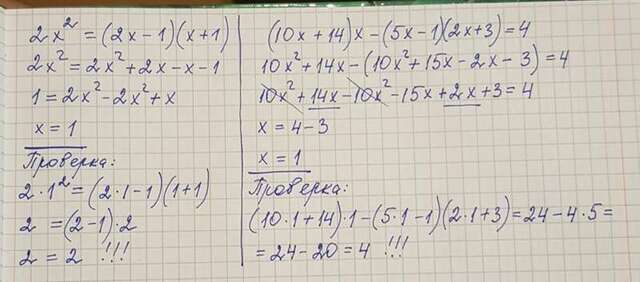 2x² = (2x-1)(x+1)
2x² = 2x²+2x-x-1
1 = 2x²-2x²+x
x = 1
Проверка:
2·1² = (2·1-1)(1+1)
2 = (2-1)·2
2 = 2 !!!
(10x+14)x-(5x-1)(2x+3)=4
10x²+14x-(10x²+15x-2x-3)=4
10x²+14x-10x²-15x+2x+3=4
x = 4-3
x = 1
Проверка:
(10·1+14)·1-(5·1-1)(2·1+3)=24-4·5=
=24-20=4 !!!